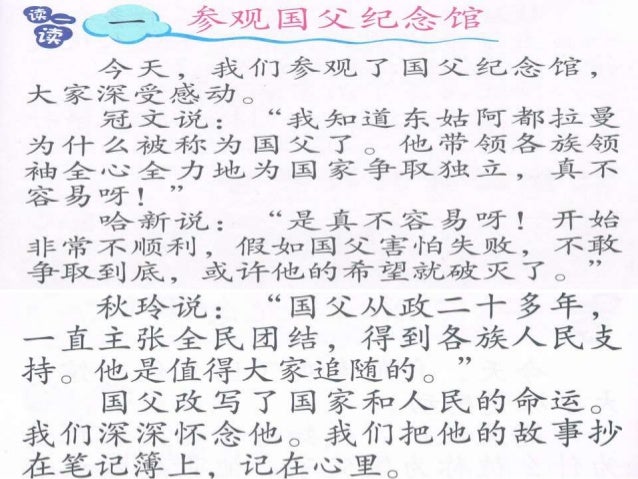 读一读
一 参观国父纪念馆
今天，我们参观了国父纪念馆，
大家深受感动。
冠文说：“我知道东姑阿都拉曼
为什么被称为国父了。他带领各族领
袖全心全力地为国家争取独立，真不
容易呀！”
哈新说：“是真不容易呀！开始
非常不顺利，假如国父害怕失败，不敢
争取到底，或许他的希望就破灭了。”
秋玲说：“国父从政二十多年，
一直主张全民团结，得到各族人民支
持。他是值得大家追随的。”
国父改写了国家和人民的命运。
我们深深怀念他。我们把他的故事抄
在笔记簿上，记在心里。